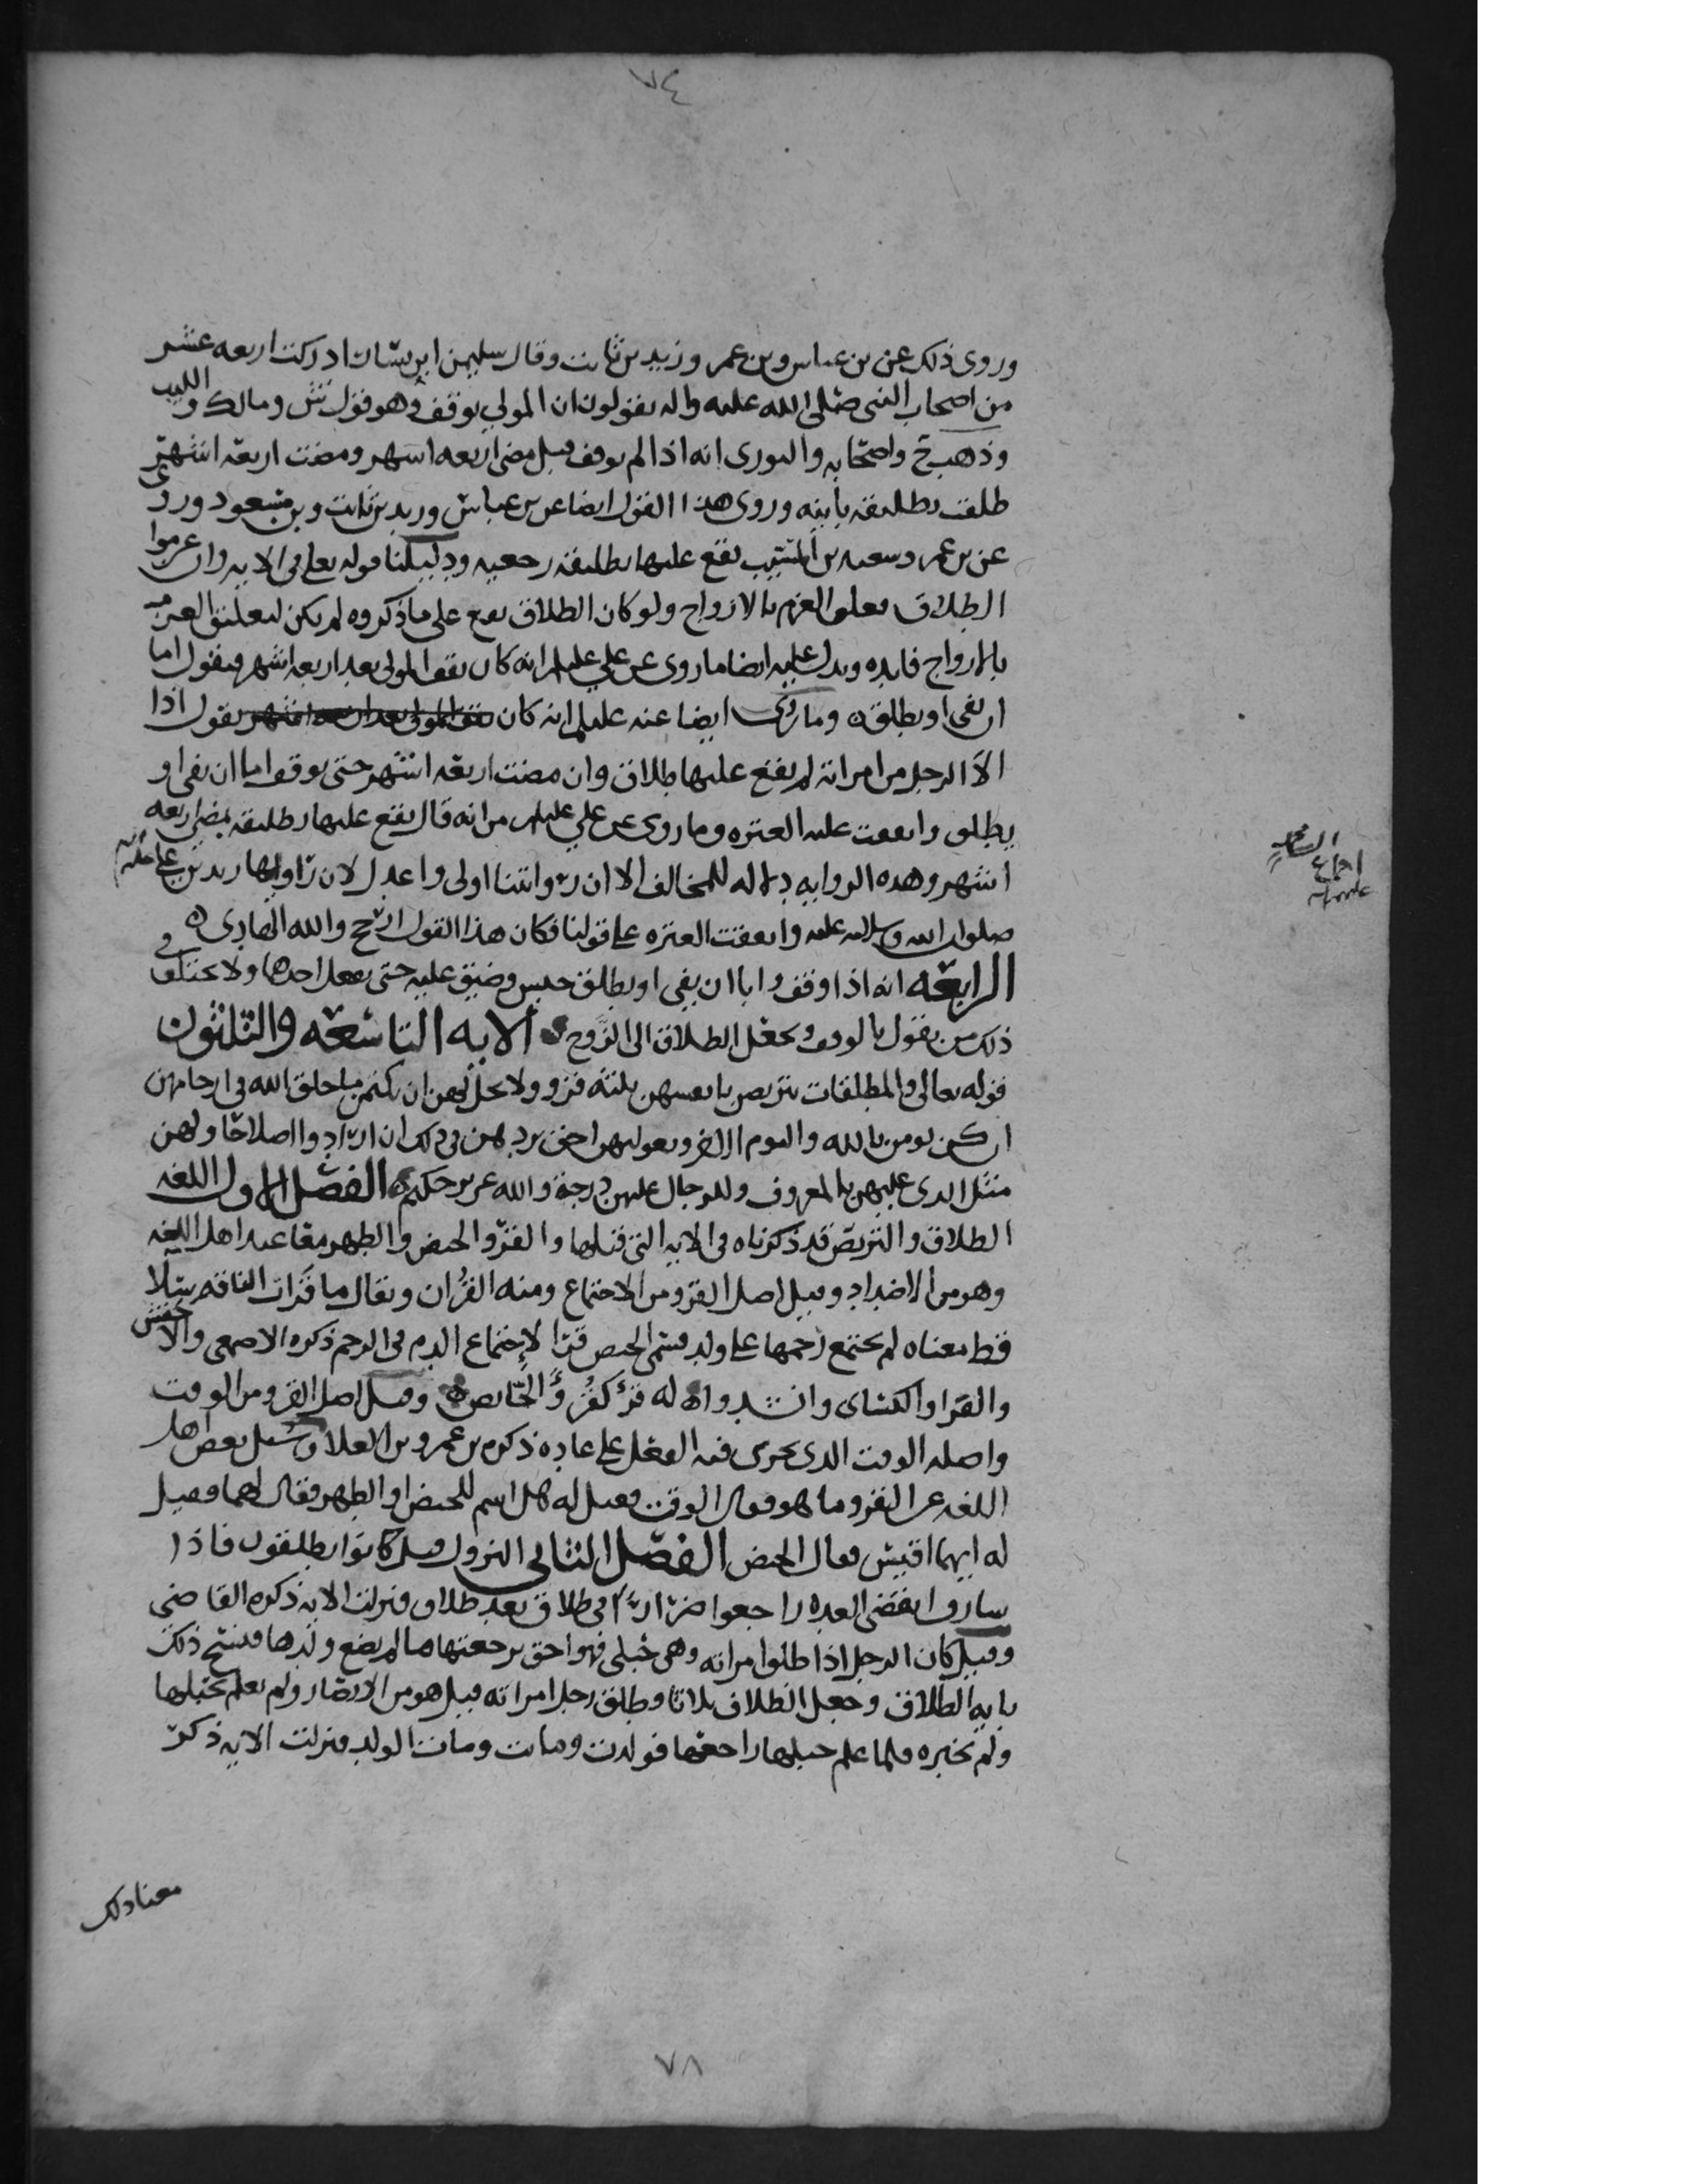 ٧٤
وروى ذلك عن بن عباس وبن عمر وزيد بن ثابت وقال سليمن ابن يسار ادركت اربعه عشر
من اصحاب النبى صلى الله عليه واله يقولون ان المولي يوقف وهو قول ش ومالك والليث
وذهب ح واصحابه والثورى انه اذا لم يوقف قبل مضى اربعه اشهر ومضت اربعة اشهر
طلقت بطليقه بأينه وروى هذا القول ايضا عن بن عباس وزيد بن ثابت وبن مسعود وروى
عن بن عمر وسعيد بن المسيب يقع عليها تطليقه رجعيه ودليلنا قوله تعلى فى الايه وان عزموا
الطلاق فعلق العزم بالازواج ولو كان الطلاق يقع على ما ذكروه لم يكن لتعليق العزم
بالازواج فايده ويدل عليه ايضا ما روى عن علي عليلم انه كان يقف المولى بعد اربعه اشهر فيقول اما
ان تفى او تطلق ه وما روى ايضا عنه عليلم انه كان يقف المولى بعد اربعه اشهر يقول اذا
الآ الرجل من امراته لم يقع عليها طلاق وان مضت اربعه اشهر حتى يوقف اما ان يفى او
يطلق واتفقت عليه العتره وما روى عن علي عليلم من انه قال يقع عليها تطليقه بمضى اربعه
اشهر وهذه الروايه دلاله للمخالف الا ان روايتنا اولى واعدل لان راويها زيد بن على
صلوات الله وسلامه عليه واتفقت العتره على قولنا فكان هذا القول ارجح والله الهادى ه
الرابعه انه اذا وقف وابا ان يفى او يطلق حبس وضيق عليه حتى يفعل احدها ولا يختلف في
ذلك من يقول بالوقف ويجعل الطلاق الى الزوج ه الايه التاسعه والثلثون
قوله تعالى والمطلقات يتربصن بانفسهن ثلثة قرو ولا يحل لهن ان يكتمن ما خلق الله فى ارحامهن
ان كن يومن بالله واليوم الاخر وبعولتهن احق بردهن فى ذلك ان ارادوا اصلاحًا ولهن
مثل الذى عليهن بالمعروف وللرجال عليهن درجة والله عزيز حكيم ه الفصل الاول اللغه
الطلاق والتربص قد ذكرناه فى الايه التى قبلها والقرو الحيض والطهر معا عند اهل اللغه
وهو من الاضداد وقيل اصل القرو من الاجتماع ومنه القرُان ويقال ما قرَات الناقه سلًا
قط معناه لم يجتمع رحمها على ولد فسمى الحيض قرا لاجتماع الدم فى الرحم ذكره الاصمعى والاخفش
والفرا والكساى وانشدوا ه له قرءٌ كقُرؤِ الحَّايض ه وقيل اصل القرو من الوقت
واصله الوقت الذى يجرى فيه الفعل على عاده ذكره بن عمرو بن العلا وسُيل بعض اهل
اللغه عن القرو ما هو فقال الوقت فقيل له هل اسم للحيض او الطهر فقال لهما فقيل
له ايهما اقيس فقال الحيض الفصل الثانى النزول قيل كانوا يطلقون فاذا
شارف انقضى العده راجعوا ضرارًا فى طلاق بعد طلاق فنزلت الايه ذكره القاضى
وقيل كان الرجل اذا طلق امراته وهى حبلى فهو احق برجعتها ما لم يضع ولدها فنسخ ذلك
بايه الطلاق وجعل الطلاق ثلاثا وطلق رجل امراته قيل هو من الانصار ولم يعلم بحبلها
ولم تخبره فلما علم حبلها راجعها فولدت وماتت ومات الولد فنزلت الايه ذكر
معنا ذلك
٧٨